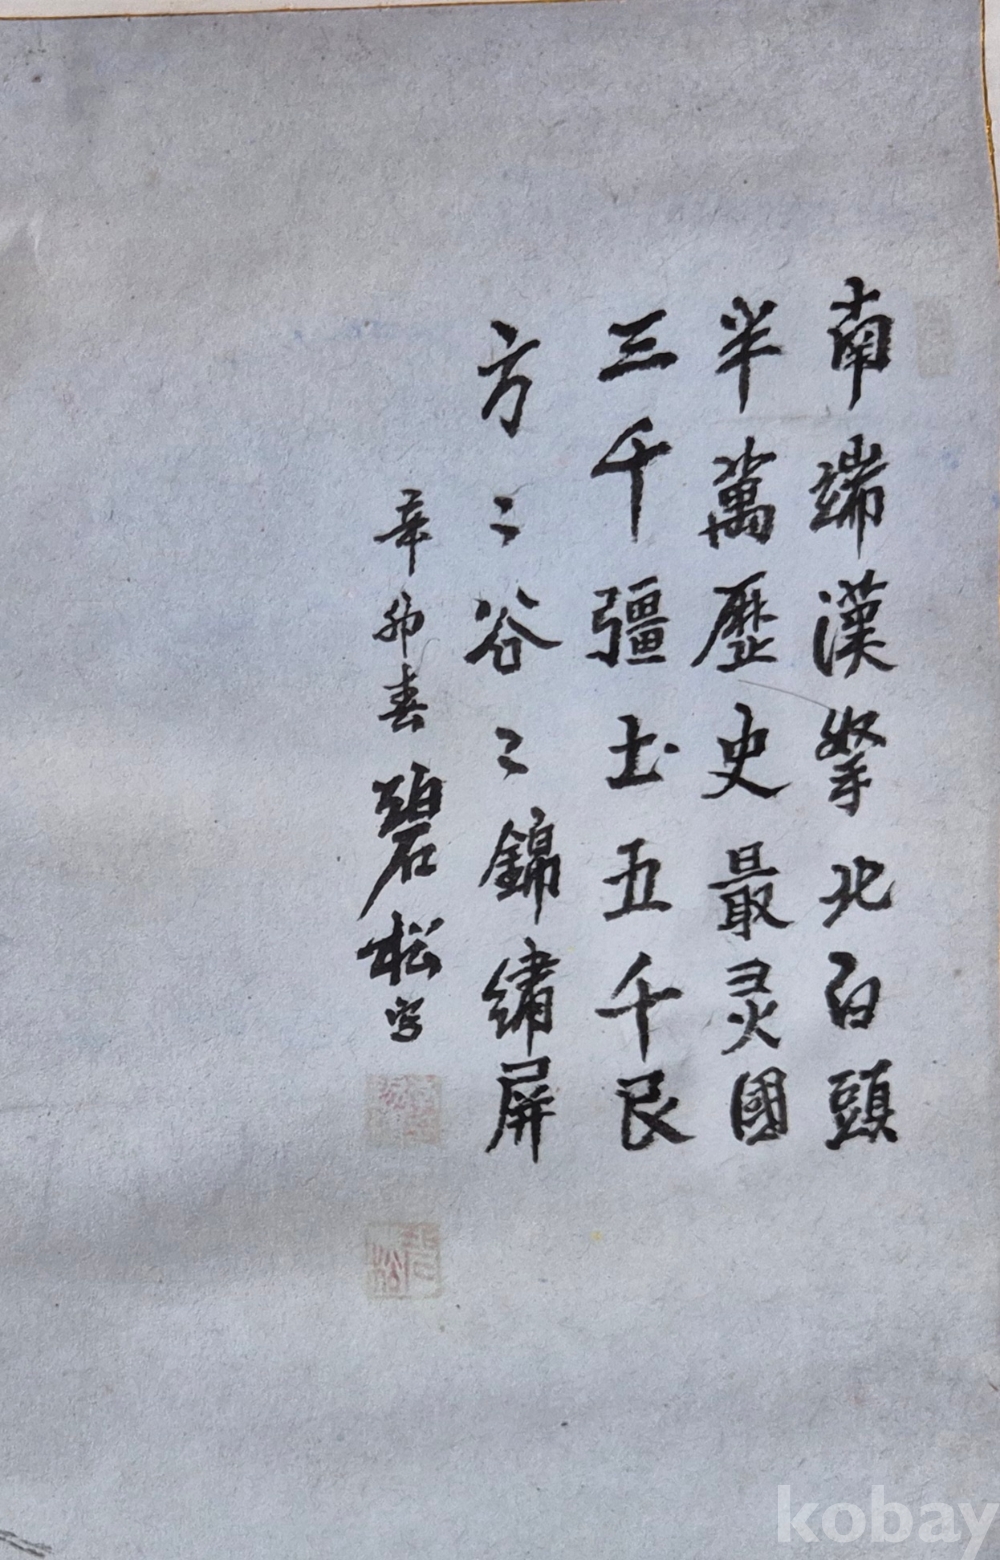 南端漢拏北白頭
半萬歷史最灵國
三千疆土五千民
方〻谷〻錦繡屏
辛卯春 碧松写
碧松
kobay